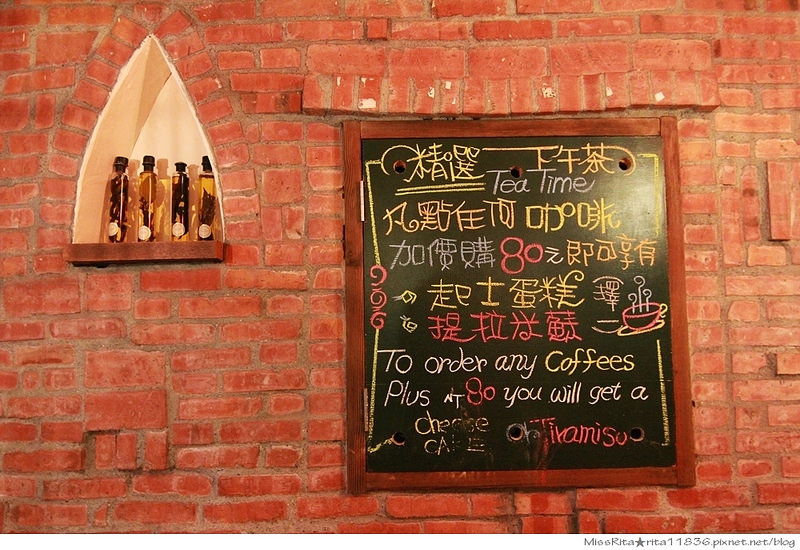 精選 下午茶
Tea Time
凡點任何咖啡
加價購80元即可享有
起士蛋糕 擇
提拉米蘇 一
To order any Coffees
Plus NT 80 you will get a
cheese
CAKE or Tiramisu
MissRita★rita11836.pixnet.net/blog